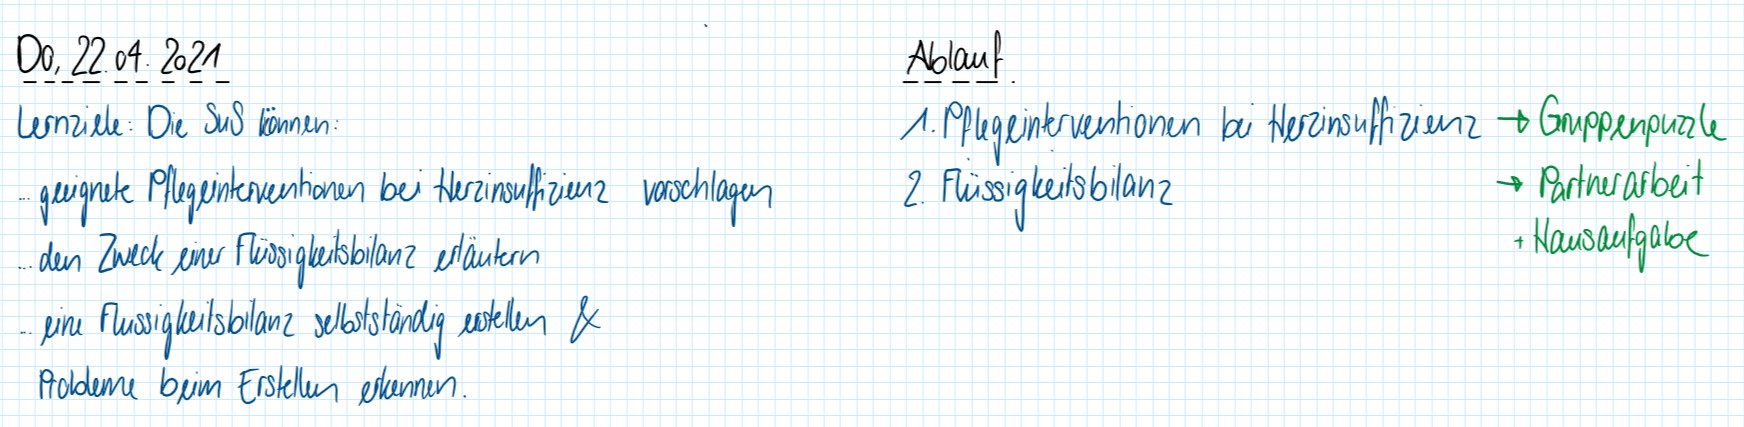 Do, 22.04.2021
Lernziele: Die SuS können:
... geeignete Pflegeinterventionen bei Herzinsuffizienz vorschlagen
... den Zweck einer Flüssigkeitsbilanz erläutern
... eine Flüssigkeitsbilanz selbstständig erstellen &
Probleme beim Erstellen erkennen.
Ablauf
1. Pflegeinterventionen bei Herzinsuffizienz → Gruppenpuzzle
2. Flüssigkeitsbilanz → Partnerarbeit
+ Hausaufgabe